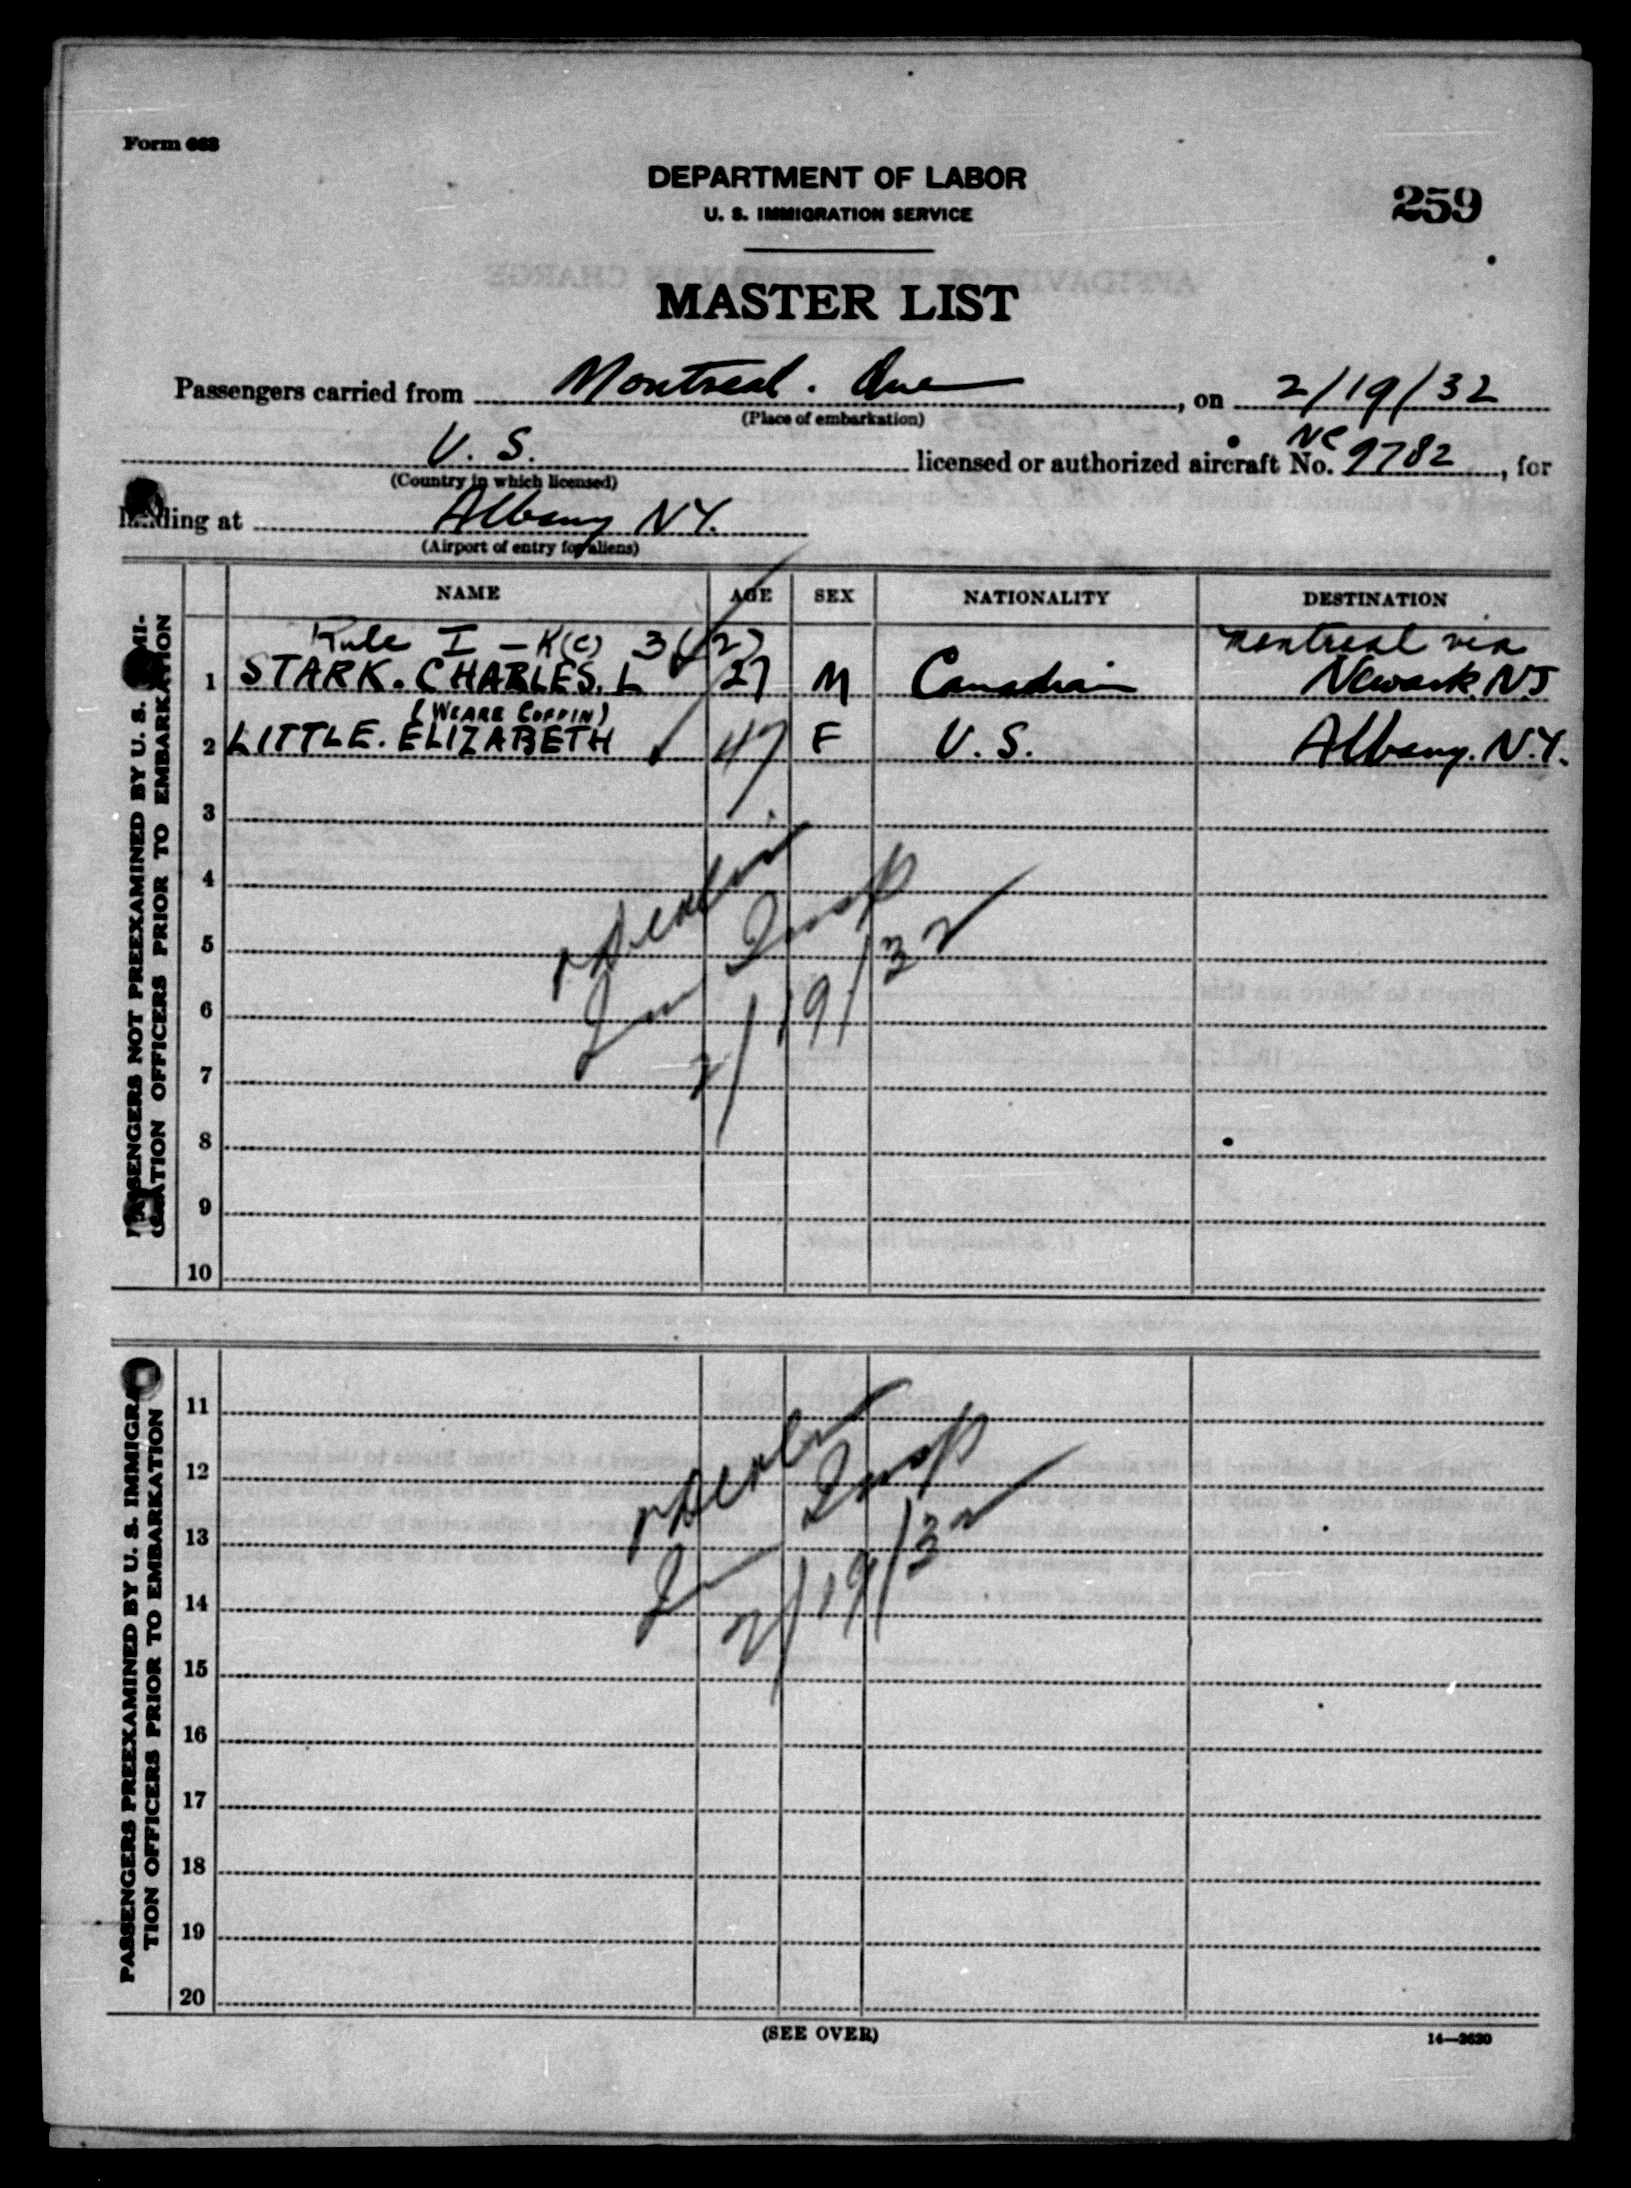 Form
DEPARTMENT OF LABOR
U. S. IMMIGRATION SERVICE
259
MASTER LIST
Passengers carried from Montreal. Que, on 2/19/32
(Place of embarkation)
U. S. licensed or authorized aircraft No. NC 9782, for
(Country in which licensed)
landing at Albany NY.
(Airport of entry for aliens)
NAME AGE SEX NATIONALITY DESTINATION
PASSENGERS NOT PREEXAMINED BY U. S. IMMI-
GRATION OFFICERS PRIOR TO EMBARKATION
Rule I - K(c) 3(2) Montreal via
1 STARK. CHARLES. L 27 M Canadian Newark. NJ
(WEARE COFFIN)
2 LITTLE. ELIZABETH 47 F U. S. Albany. N.Y.
3
4
5
6
Insp
2/19/32
7
8
9
10
PASSENGERS PREEXAMINED BY U. S. IMMIGRA-
TION OFFICERS PRIOR TO EMBARKATION
11
12
13
Insp
2/19/32
14
15
16
17
18
19
20
(SEE OVER)
14—2620